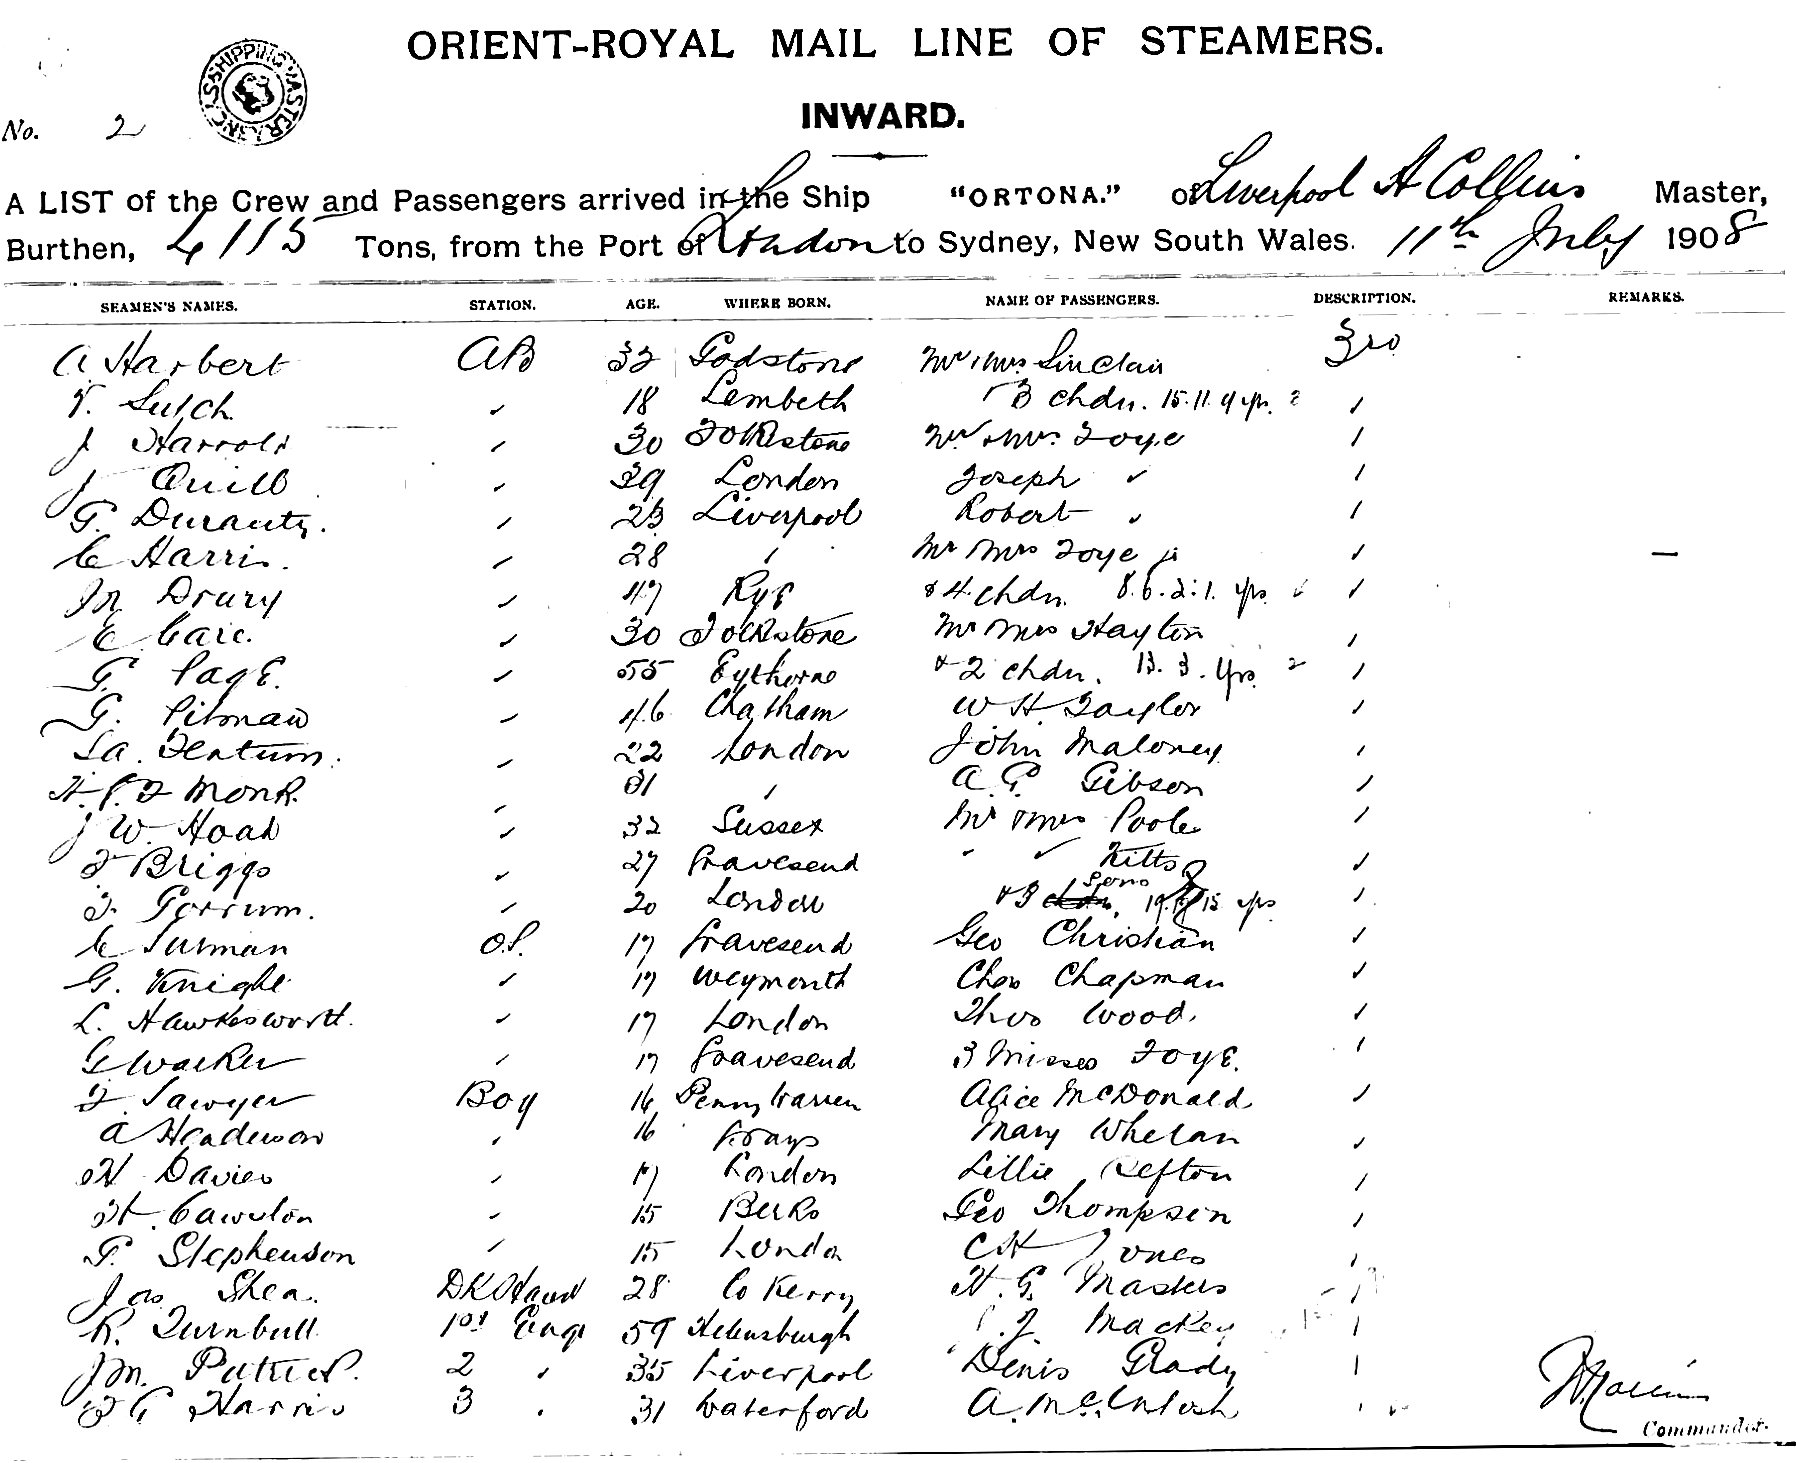 ORIENT-ROYAL MAIL LINE OF STEAMERS.
SHIPPING MASTER
INWARD.
No. 2
A LIST of the Crew and Passengers arrived in the Ship "ORTONA." of Liverpool A Collins Master,
Burthen, 4115 Tons, from the Port of London to Sydney, New South Wales. 11th July 1908
SEAMEN'S NAMES. STATION. AGE. WHERE BORN. NAME OF PASSENGERS. DESCRIPTION. REMARKS.
A Harbert AB 32 Godstone Mr & Mrs Sinclair 3rd
18 Lembeth 3 chdn. 15. 11. 9 yrs.
J Harrold 30 Folkstone Mr & Mrs Foye
J Quill 39 London Joseph
G. Durauty. 23 Liverpool Robert
C Harris. 28 Mr Mrs Foye
Drury 47 Rye & 4 chdn. 8. 6. 2. 1. yrs
30 Folkstone Mr Mrs Hayton
G. Page. 55 Eythorne & 2 chdn. 13. 3. yrs.
G. Pitman 46 Chatham W H Taylor
22 London John Maloney
Monk. 31 A. G. Gibson
J W. Hoad 32 Sussex Mr & Mrs Poole
F Briggs 27 Gravesend Kitts
F. Gorrum. 20 London & 3 sons 15 yrs
C Surman O.S. 17 Gravesend Geo Christian
G. Knight 17 Weymouth Chas Chapman
L. Hawkesworth. 17 London Thos Wood.
G Walker 17 Gravesend 3 Misses Foye.
F. Sawyer Boy 16 Penny Warren Alice McDonald
A Henderson 16 Grays Mary Whelan
H Davies 17 London Lillie Refton
15 Berks Geo Thompson
G. Stephenson 15 London C H Jones
Jas Shea. DK Hand 28 Co Kerry H. G. Masters
R. Turnbull 1st Engr 59 Helensburgh J. Mackey
2 35 Liverpool Denis Grady
F G Harris 3 31 Waterford A. McIntosh
A Collins
Commander.